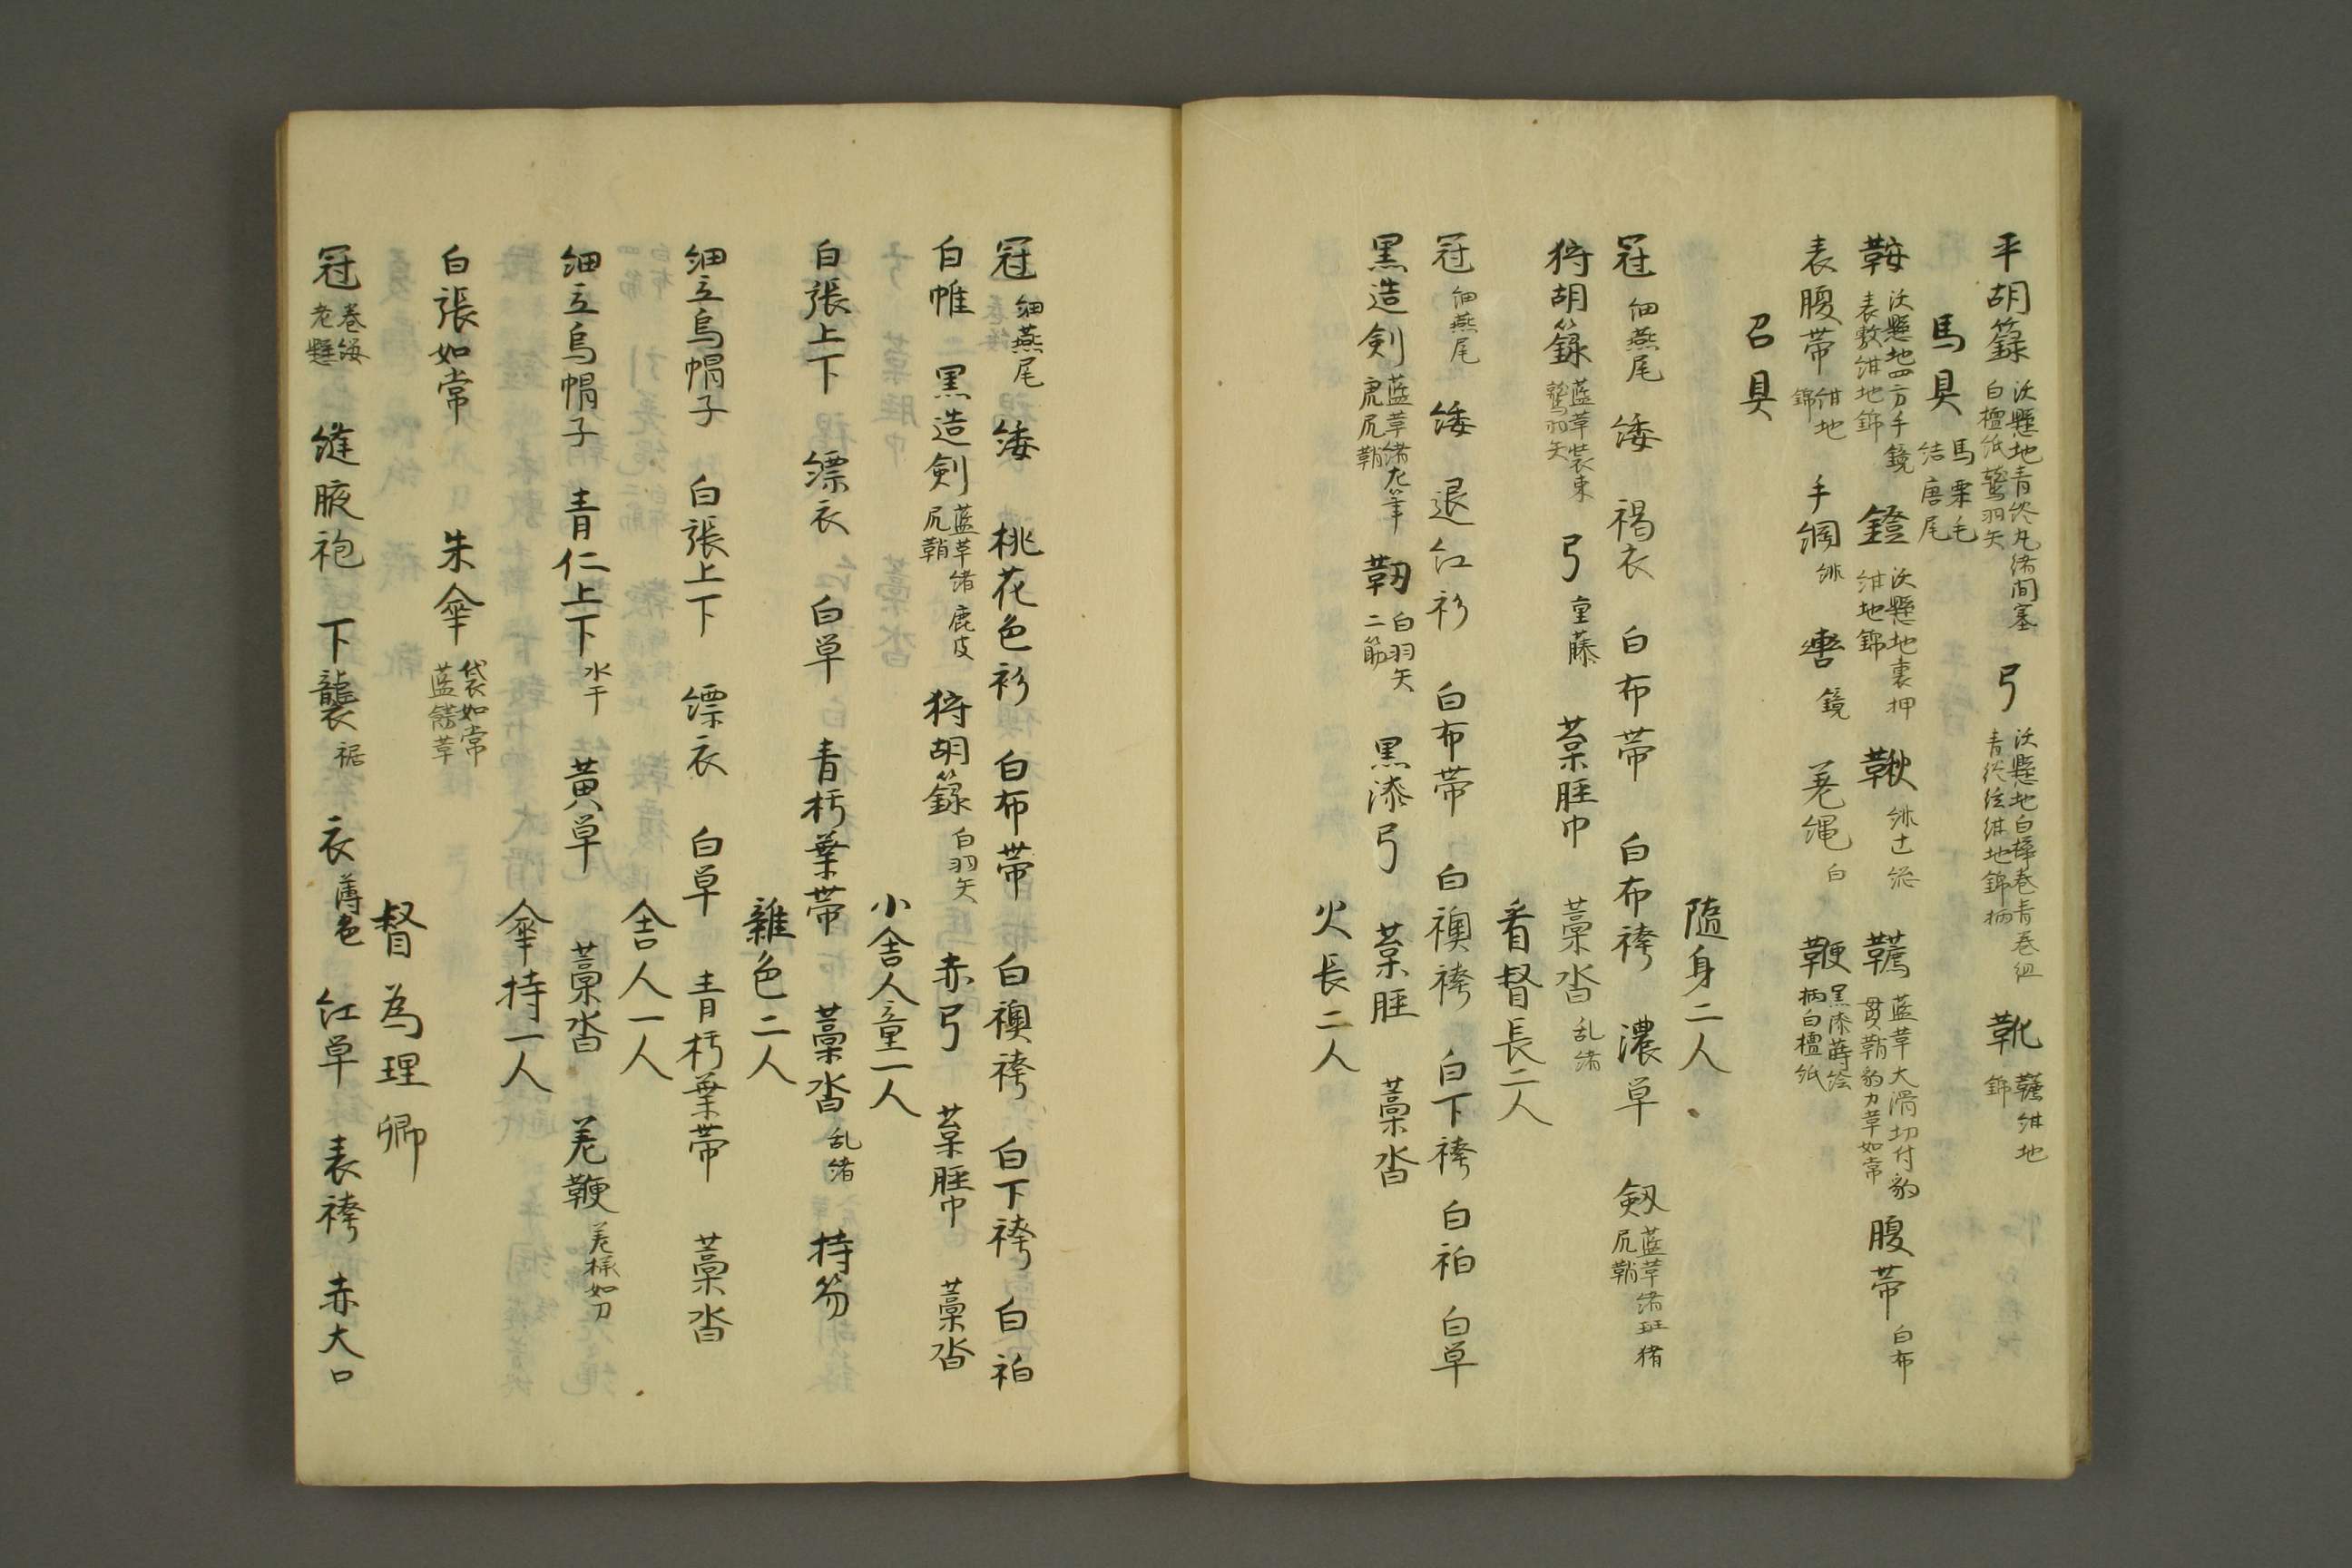 平胡籙 沃懸地青終丸緒間塞 白檀紙鷲羽矢 弓 沃懸地白樺巻青巻組 青終弦紺地錦柄 靴 韈紺地 錦
馬具 馬栗毛 結唐尾
鞍 沃懸地四方手鏡 表敷紺地錦 鐙 沃懸地裏押 紺地錦 鞦 緋辻総 韉 藍革大滑切付豹 貫鞘豹力革如常 腹帯 白布
表腹帯 紺地 錦 手綱 緋 轡 鏡 差縄 白 鞭 黒漆蒔絵 柄白檀紙
召具
随身二人
冠 細燕尾 緌 褐衣 白布帯 白布袴 濃単 剱 藍革緒斑猪 尻鞘
狩胡籙 藍革装束 鷲羽矢 弓 重藤 葈脛巾 藁沓 乱緒
看督長二人
冠 細燕尾 緌 退紅衫 白布帯 白襖袴 白下袴 白袙 白単
黒造剣 藍革緒 虎尻鞘 靭 白羽矢 二筋 黒漆弓 葈脛 藁沓
火長二人
冠 細燕尾 緌 桃花色衫 白布帯 白襖袴 白下袴 白袙
白帷 黒造剣 藍革緒鹿皮 尻鞘 狩胡籙 白羽矢 赤弓 葈脛巾 藁沓
小舎人童二人
白張上下 縹衣 白単 青朽葉帯 藁沓 乱緒 持笏
雑色二人
細立烏帽子 白張上下 縹衣 白単 青朽葉帯 藁沓
舎人一人
細立烏帽子 青仁上下 水干 黄単 藁沓 差鞭 差様如刀
傘持一人
白張如常 朱傘 袋如常 藍革
督為理卿
冠 巻纓 老懸 縫腋袍 下襲 裾 衣 薄色 紅単 表袴 赤大口